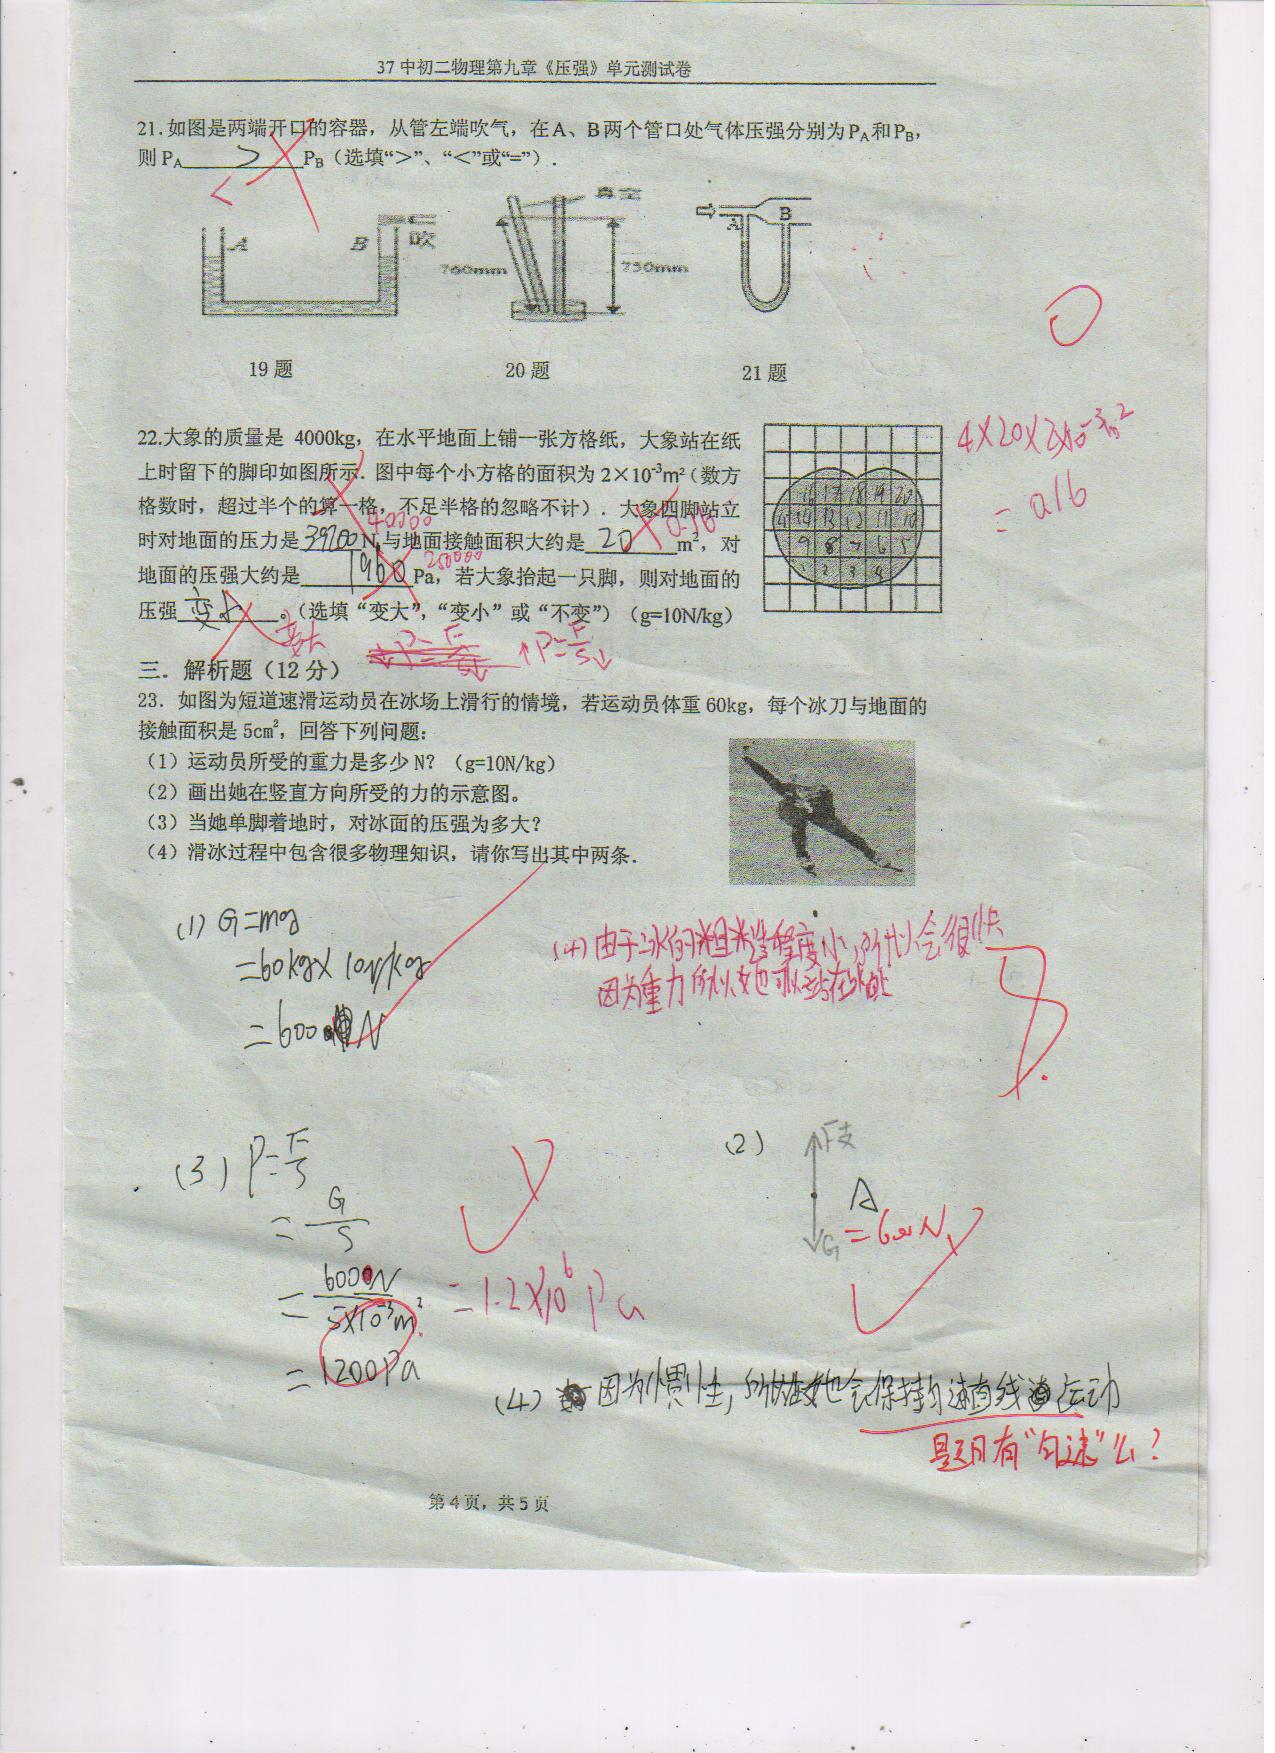 37中初二物理第九章《压强》单元测试卷
21.如图是两端开口的容器，从管左端吹气，在A、B两个管口处气体压强分别为PA和PB，
则PA > PB（选填“>”、“<”或“=”）.
<
真空
A B 吹
760mm 750mm
A B
19题 20题 21题
22.大象的质量是 4000kg，在水平地面上铺一张方格纸，大象站在纸
上时留下的脚印如图所示．图中每个小方格的面积为 2×10⁻³m²（数方
格数时，超过半个的算一格，不足半格的忽略不计）．大象四脚站立
40000 0.16
时对地面的压力是39200N,与地面接触面积大约是 20 m²，对
250000
地面的压强大约是 1960 Pa，若大象抬起一只脚，则对地面的
压强 变小 。（选填“变大”，“变小”或“不变”）（g=10N/kg）
变大
↑P=F/S↓
16 17 18 19 20
14 13 12 11 10
9 8 7 6 5
1 2 3 4
= 0.16
三．解析题（12分）
23．如图为短道速滑运动员在冰场上滑行的情境，若运动员体重60kg，每个冰刀与地面的
接触面积是5cm²，回答下列问题：
（1）运动员所受的重力是多少N？（g=10N/kg）
（2）画出她在竖直方向所受的力的示意图。
（3）当她单脚着地时，对冰面的压强为多大？
（4）滑冰过程中包含很多物理知识，请你写出其中两条．
(1) G=mg
=60kg×10N/kg
=600N
(4) 由于冰的粗糙程度小,所以会很快
因为重力所以她可以站在冰上
(2) F支
G =600N
(3) P=F/S
=G/S
=600N/5×10⁻³m²
=1.2×10⁶Pa
=1200Pa
(4) 因为惯性,所以她会保持匀速直线运动
题目有“匀速”么?
第4页，共5页